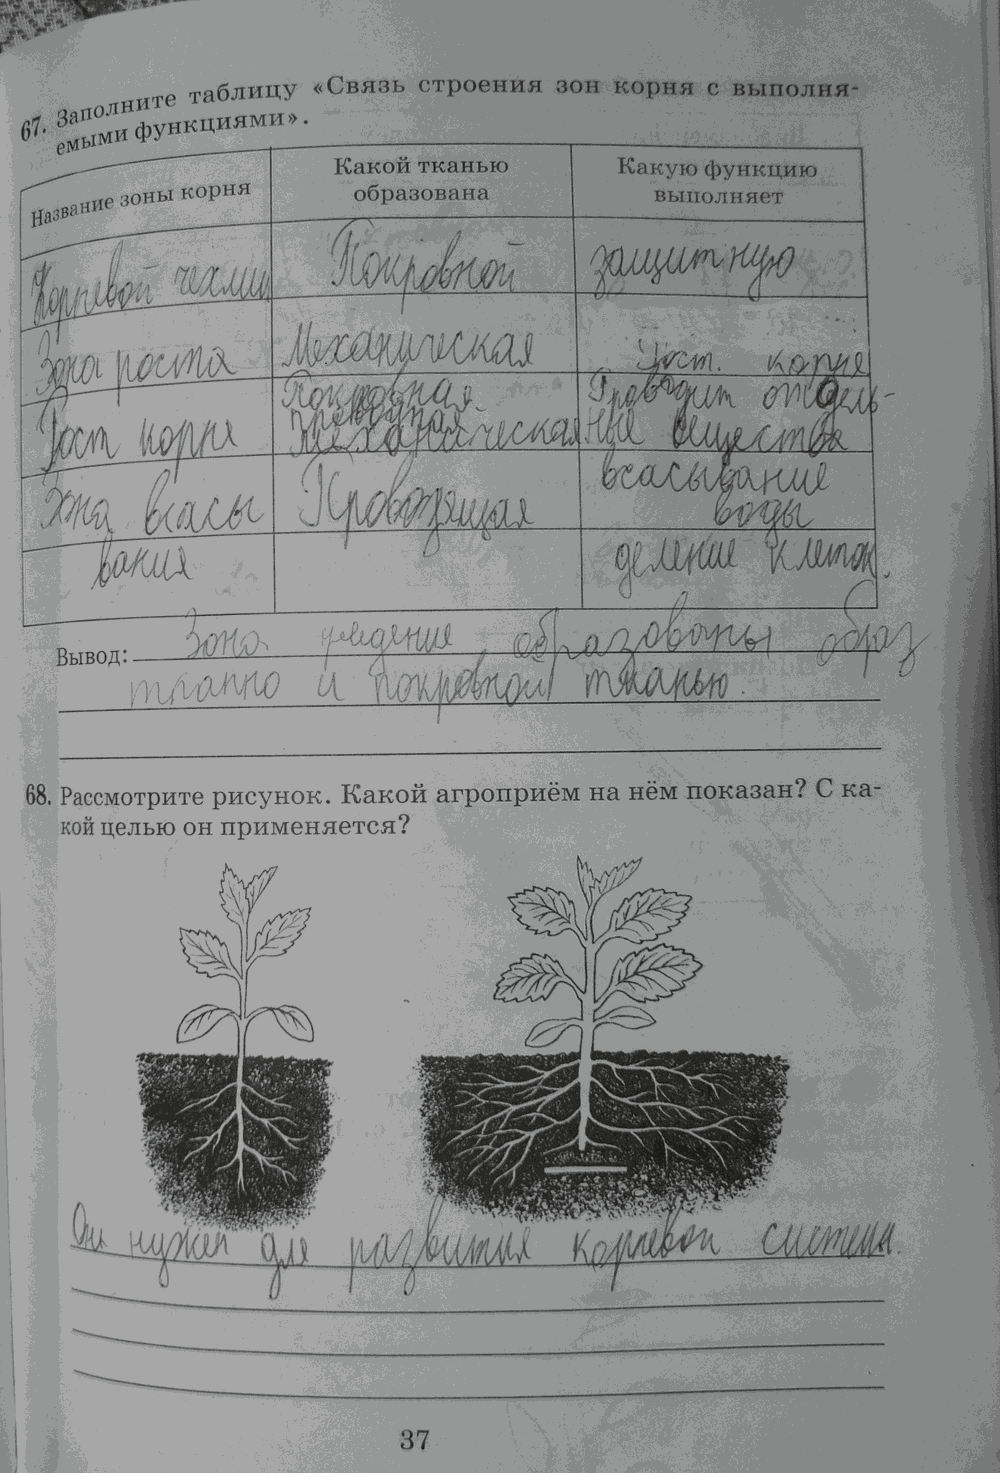 67. Заполните таблицу «Связь строения зон корня с выполня-
емыми функциями».
Название зоны корня
Какой тканью
образована
Какую функцию
выполняет
Корневой чехлик
Покровной
защитную
Зона роста
Механическая
рост. корня
Рост корня
Покровная
проводная
механическая
Проводит отдель-
ные вещества
Зона всасы
вания
Проводящая
всасывание
воды
деление клеток.
Вывод: Зона деления образованы образ
тканно и покровной тканью.
68. Рассмотрите рисунок. Какой агроприём на нём показан? С ка-
кой целью он применяется?
Он нужен для развития корневой система.
37